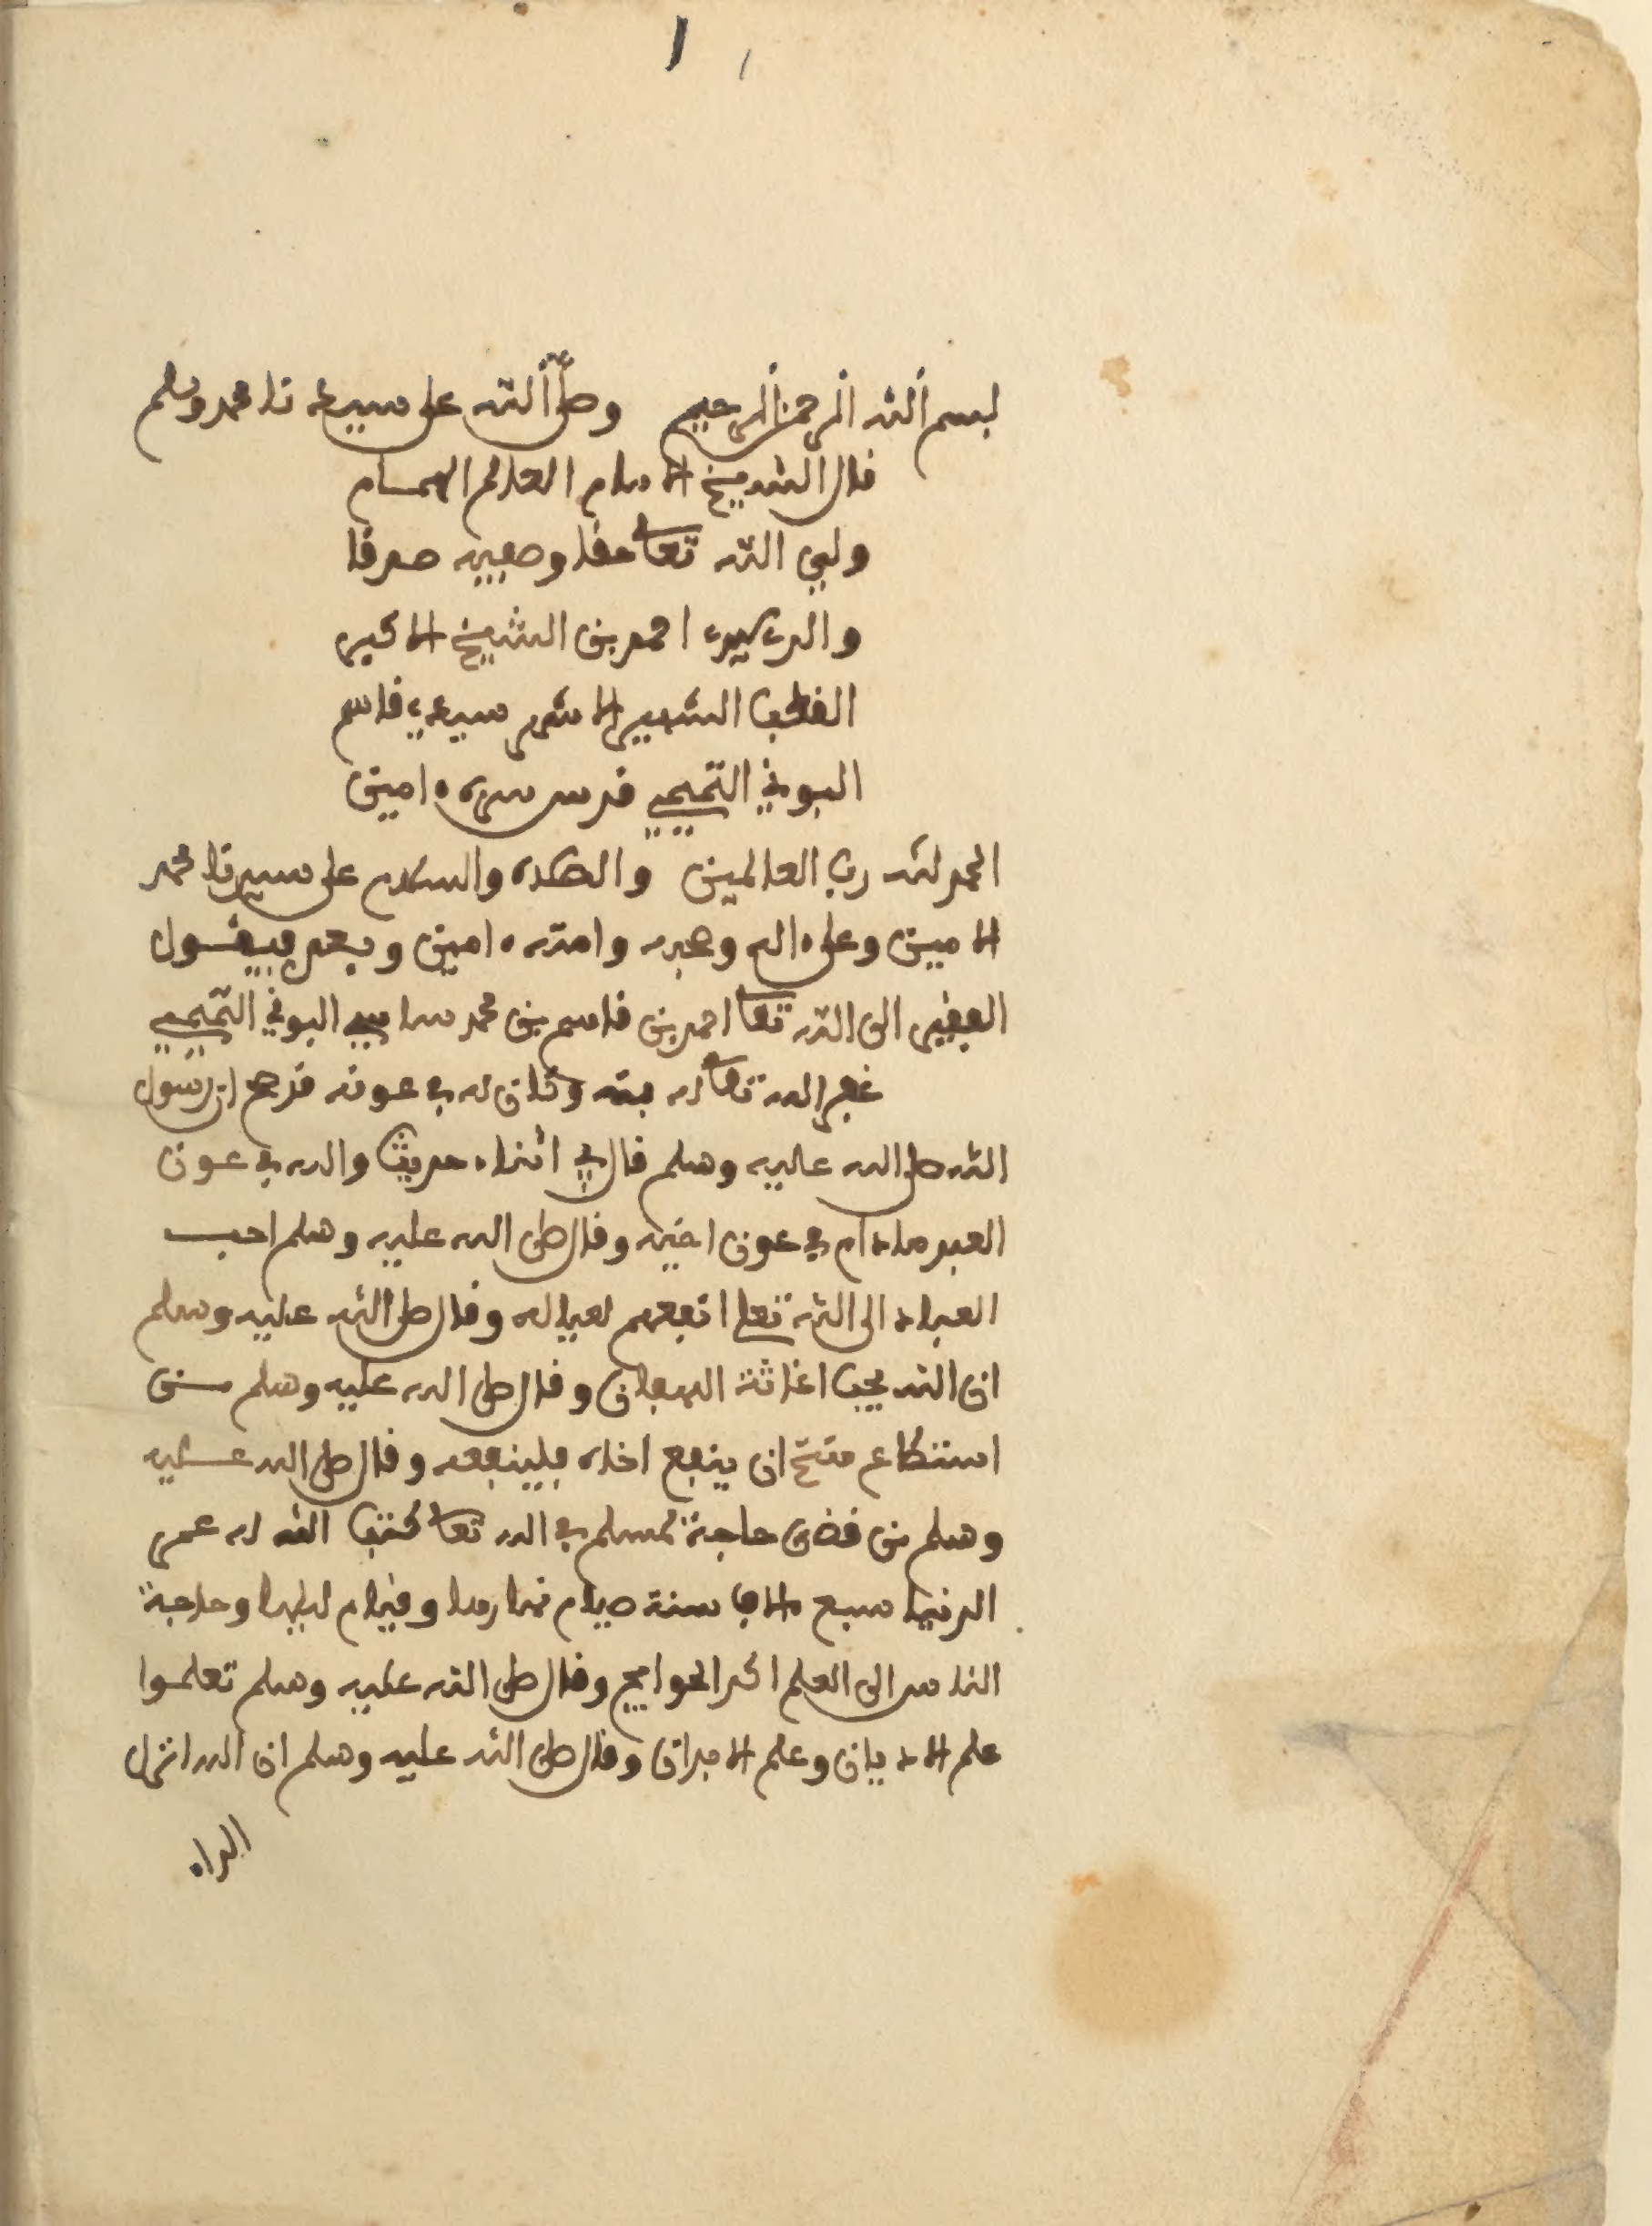 ١
بسم الله الرحمن الرحيم وصلى الله على سيدنا محمد وسلم
قال الشيخ الامام العالم الهمام
ولي الله تعالى حقا وصفيه صدقا
احمد بن الشيخ الاكبر
القطب الشهير الاشهر سيدي قاسم
البوني التميمي قدس سره ءامين
الحمد لله رب العالمين والصلاة والسلام على سيدنا محمد
الامين وعلى ءاله وصحبه وامته ءامين وبعد فيقول
الفقير الى الله تعالى احمد بن قاسم بن محمد ساسي البوني التميمي
غفر الله تعالى له وكان له في عونه قد صح ان رسول
الله صلى الله عليه وسلم قال في اثناء حديث والله في عون
العبد مادام في عون اخيه وقال صلى الله عليه وسلم احب
العباد الى الله تعلى انفعهم لعياله وقال صلى الله عليه وسلم
ان الله يحب اغاثة اللهفان وقال صلى الله عليه وسلم من
استطاع منكم ان ينفع اخاه فلينفعه وقال صلى الله عليه
وسلم من قضى حاجة لمسلم في الله تعالى كتب الله له عمر
الدنيا سبع ءالاف سنة صيام نهارها وقيام ليلها وحاجة
الناس الى العلم اكد الحوايج وقال صلى الله عليه وسلم تعلموا
علم الاديان وعلم الابدان وقال صلى الله عليه وسلم ان الله انزل
الداء